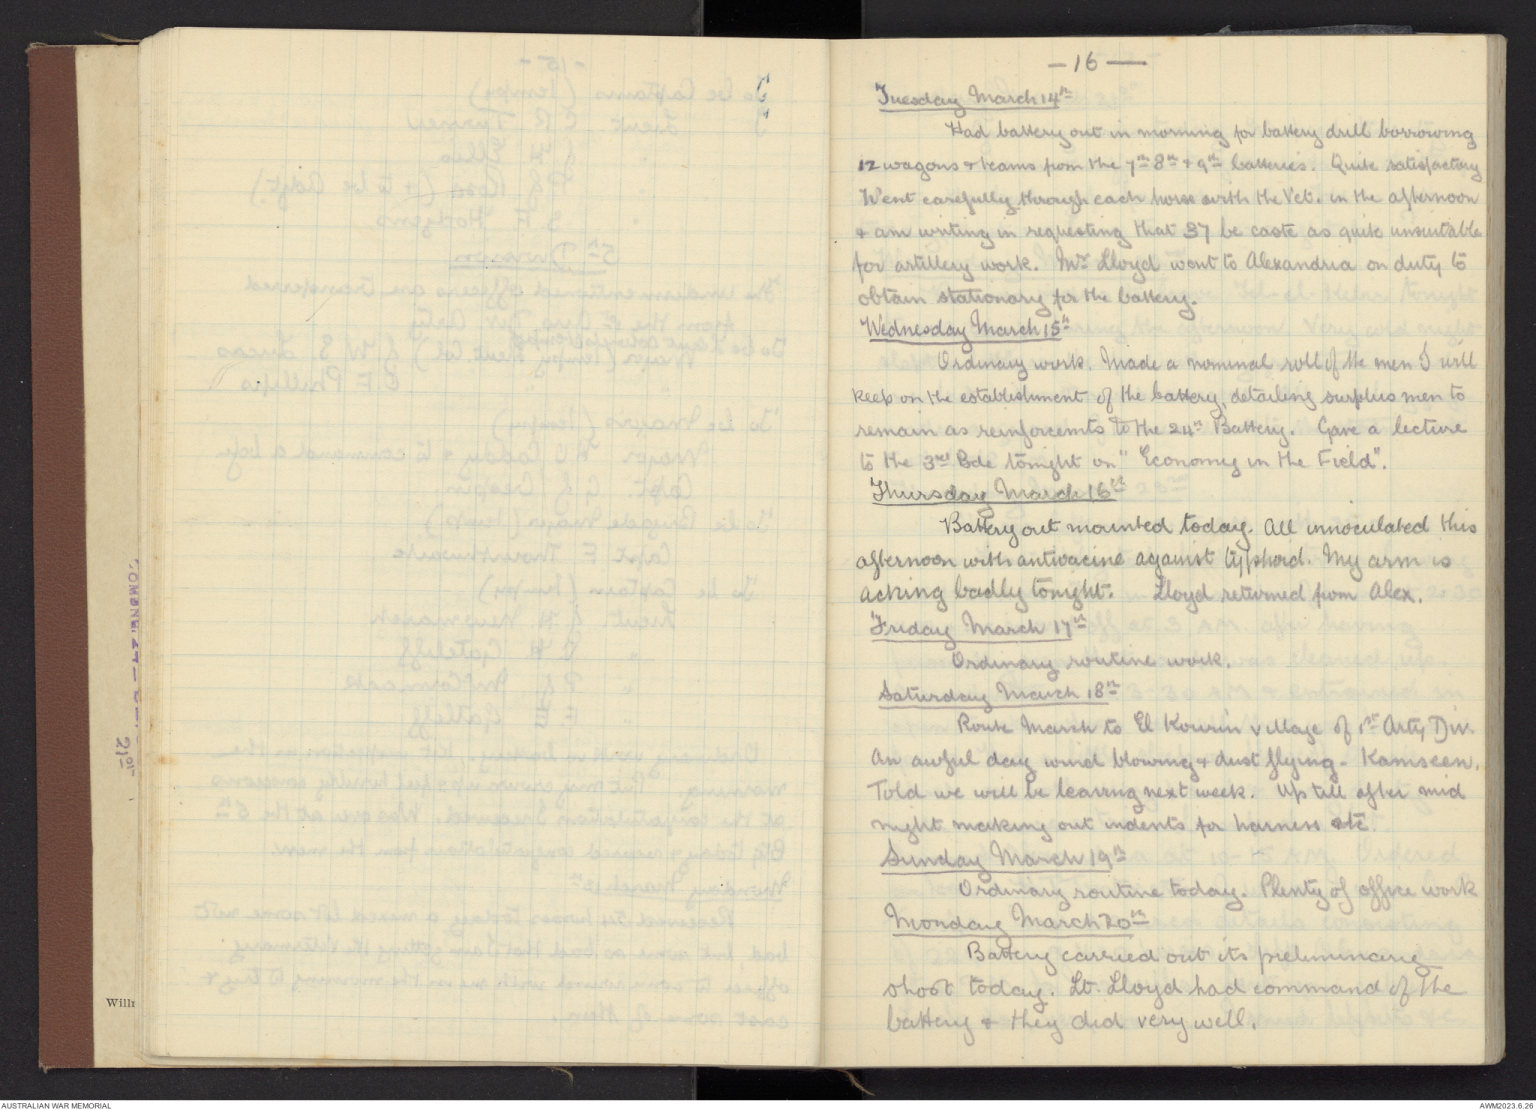 -16-
Tuesday March 14th
Had battery out in morning for battery drill borrowing
12 wagons & teams from the 7th 8th & 9th batteries. Quite satisfactory
Went carefully through each horse with the Vet. in the afternoon
& am writing in requesting that 37 be caste as quite unsuitable
for artillery work. Mr Lloyd went to Alexandria on duty to
obtain stationary for the battery.
Wednesday March 15th
Ordinary work. Made a nominal roll of the men I will
keep on the establishment of the battery, detailing surplus men to
remain as reinforcemts to the 24th Battery. Gave a lecture
to the 3rd Bde tonight on "Economy in the Field".
Thursday March 16th
Battery out mounted today. All innoculated this
afternoon with antivacine against typhoid. My arm is
acking badly tonight. Lloyd returned from Alex.
Friday March 17th
Ordinary routine work.
Saturday March 18th
Route March to El Kourin village of 1st Arty Div.
An awful day wind blowing & dust flying - Kamseen.
Told we will be leaving next week. Up till after mid
night making out indents for harness etc.
Sunday March 19th
Ordinary routine today. Plenty of office work
Monday March 20th
Battery carried out its preliminary
shoot today. Lt. Lloyd had command of the
battery & they did very well.
Willi
AUSTRALIAN WAR MEMORIAL
AWM2023.6.26